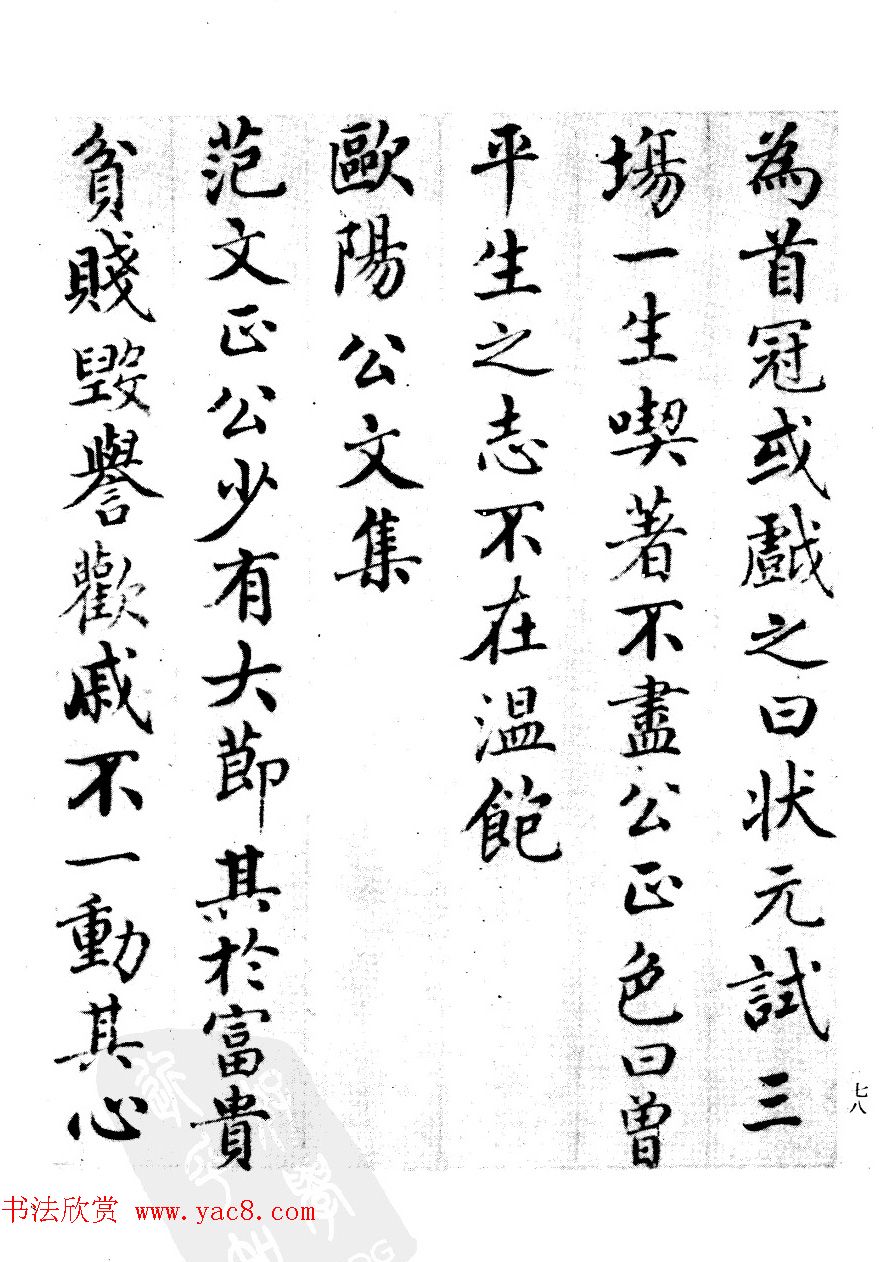 為首冠或戲之曰状元試三
塲一生喫著不盡公正色曰曾
平生之志不在温飽
歐陽公文集
范文正公少有大節其於富貴
貧賤毀譽歡戚不一動其心
七八
书法欣赏 www.yac8.com